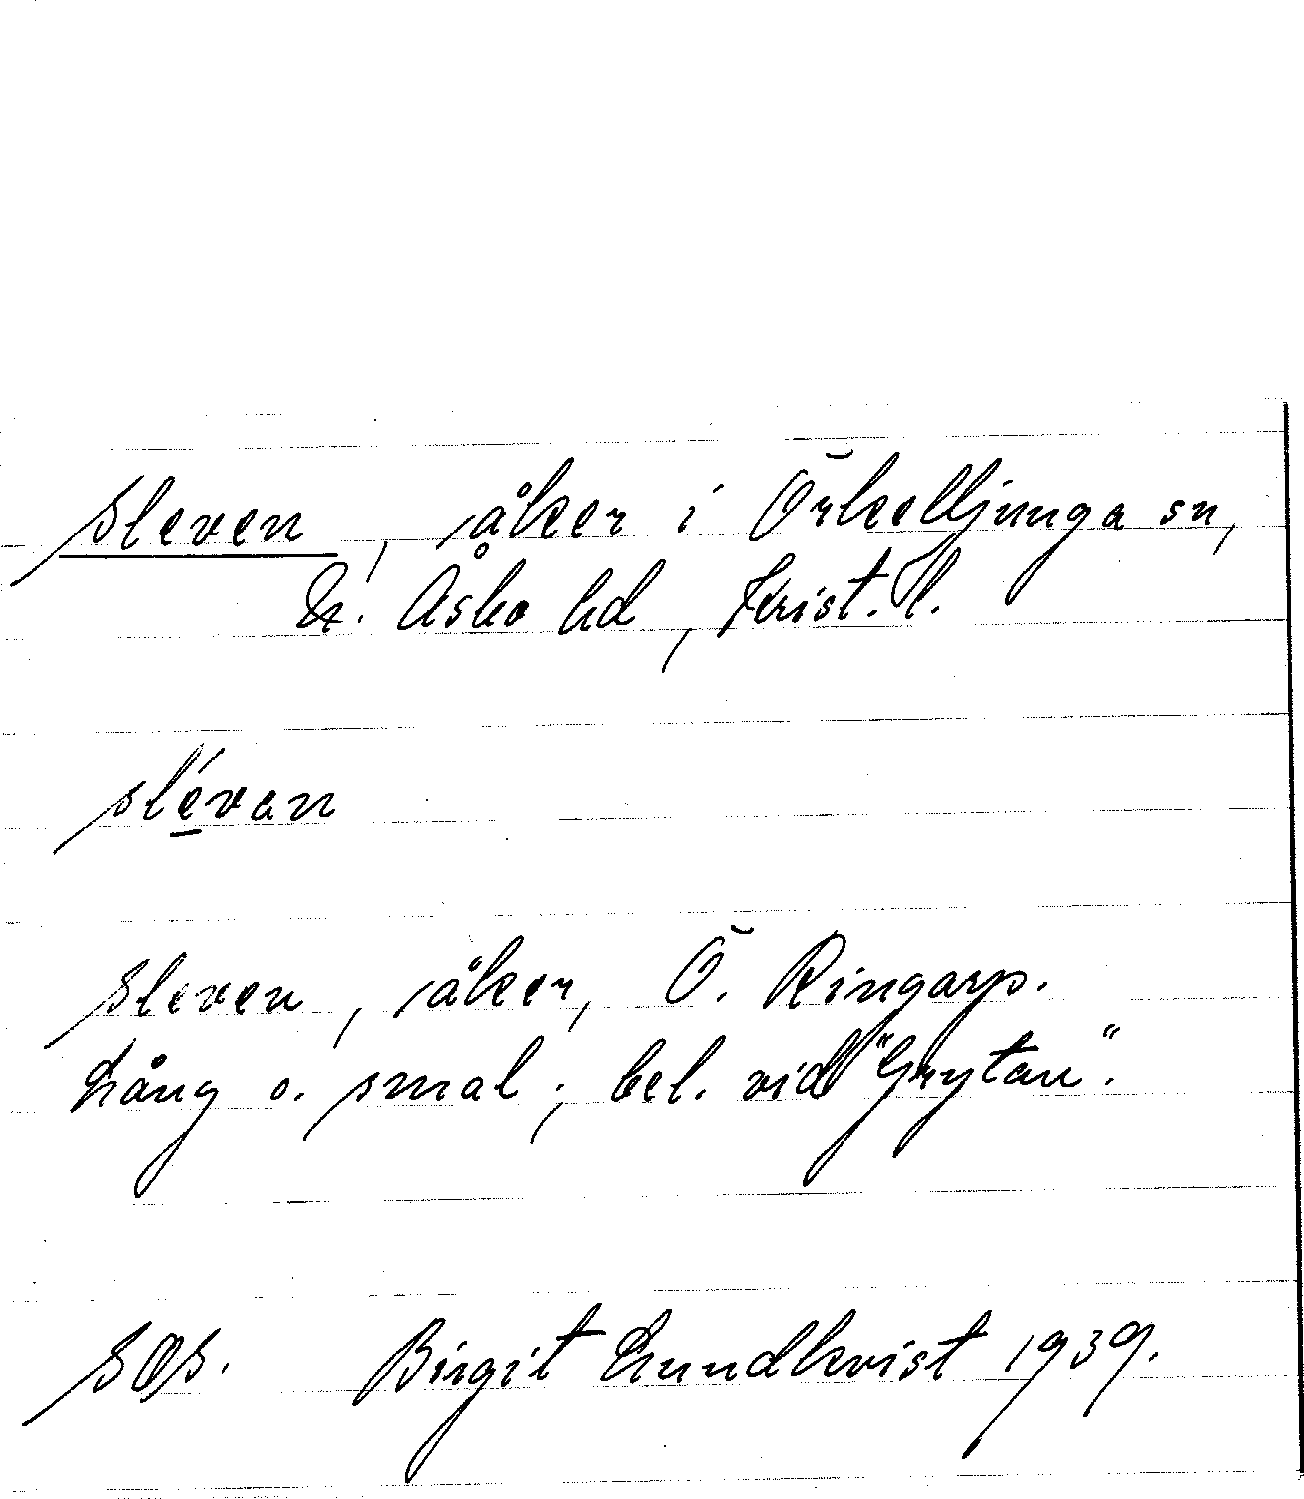 Sleven, åker i Örkelljunga sn,
N. Åsbo hd, Krist. l.
slévan
Sleven, åker, Ö. Ringarp.
Lång o. smal; bel. vid "Grytan".
SOS. Birgit Lundkvist 1939.